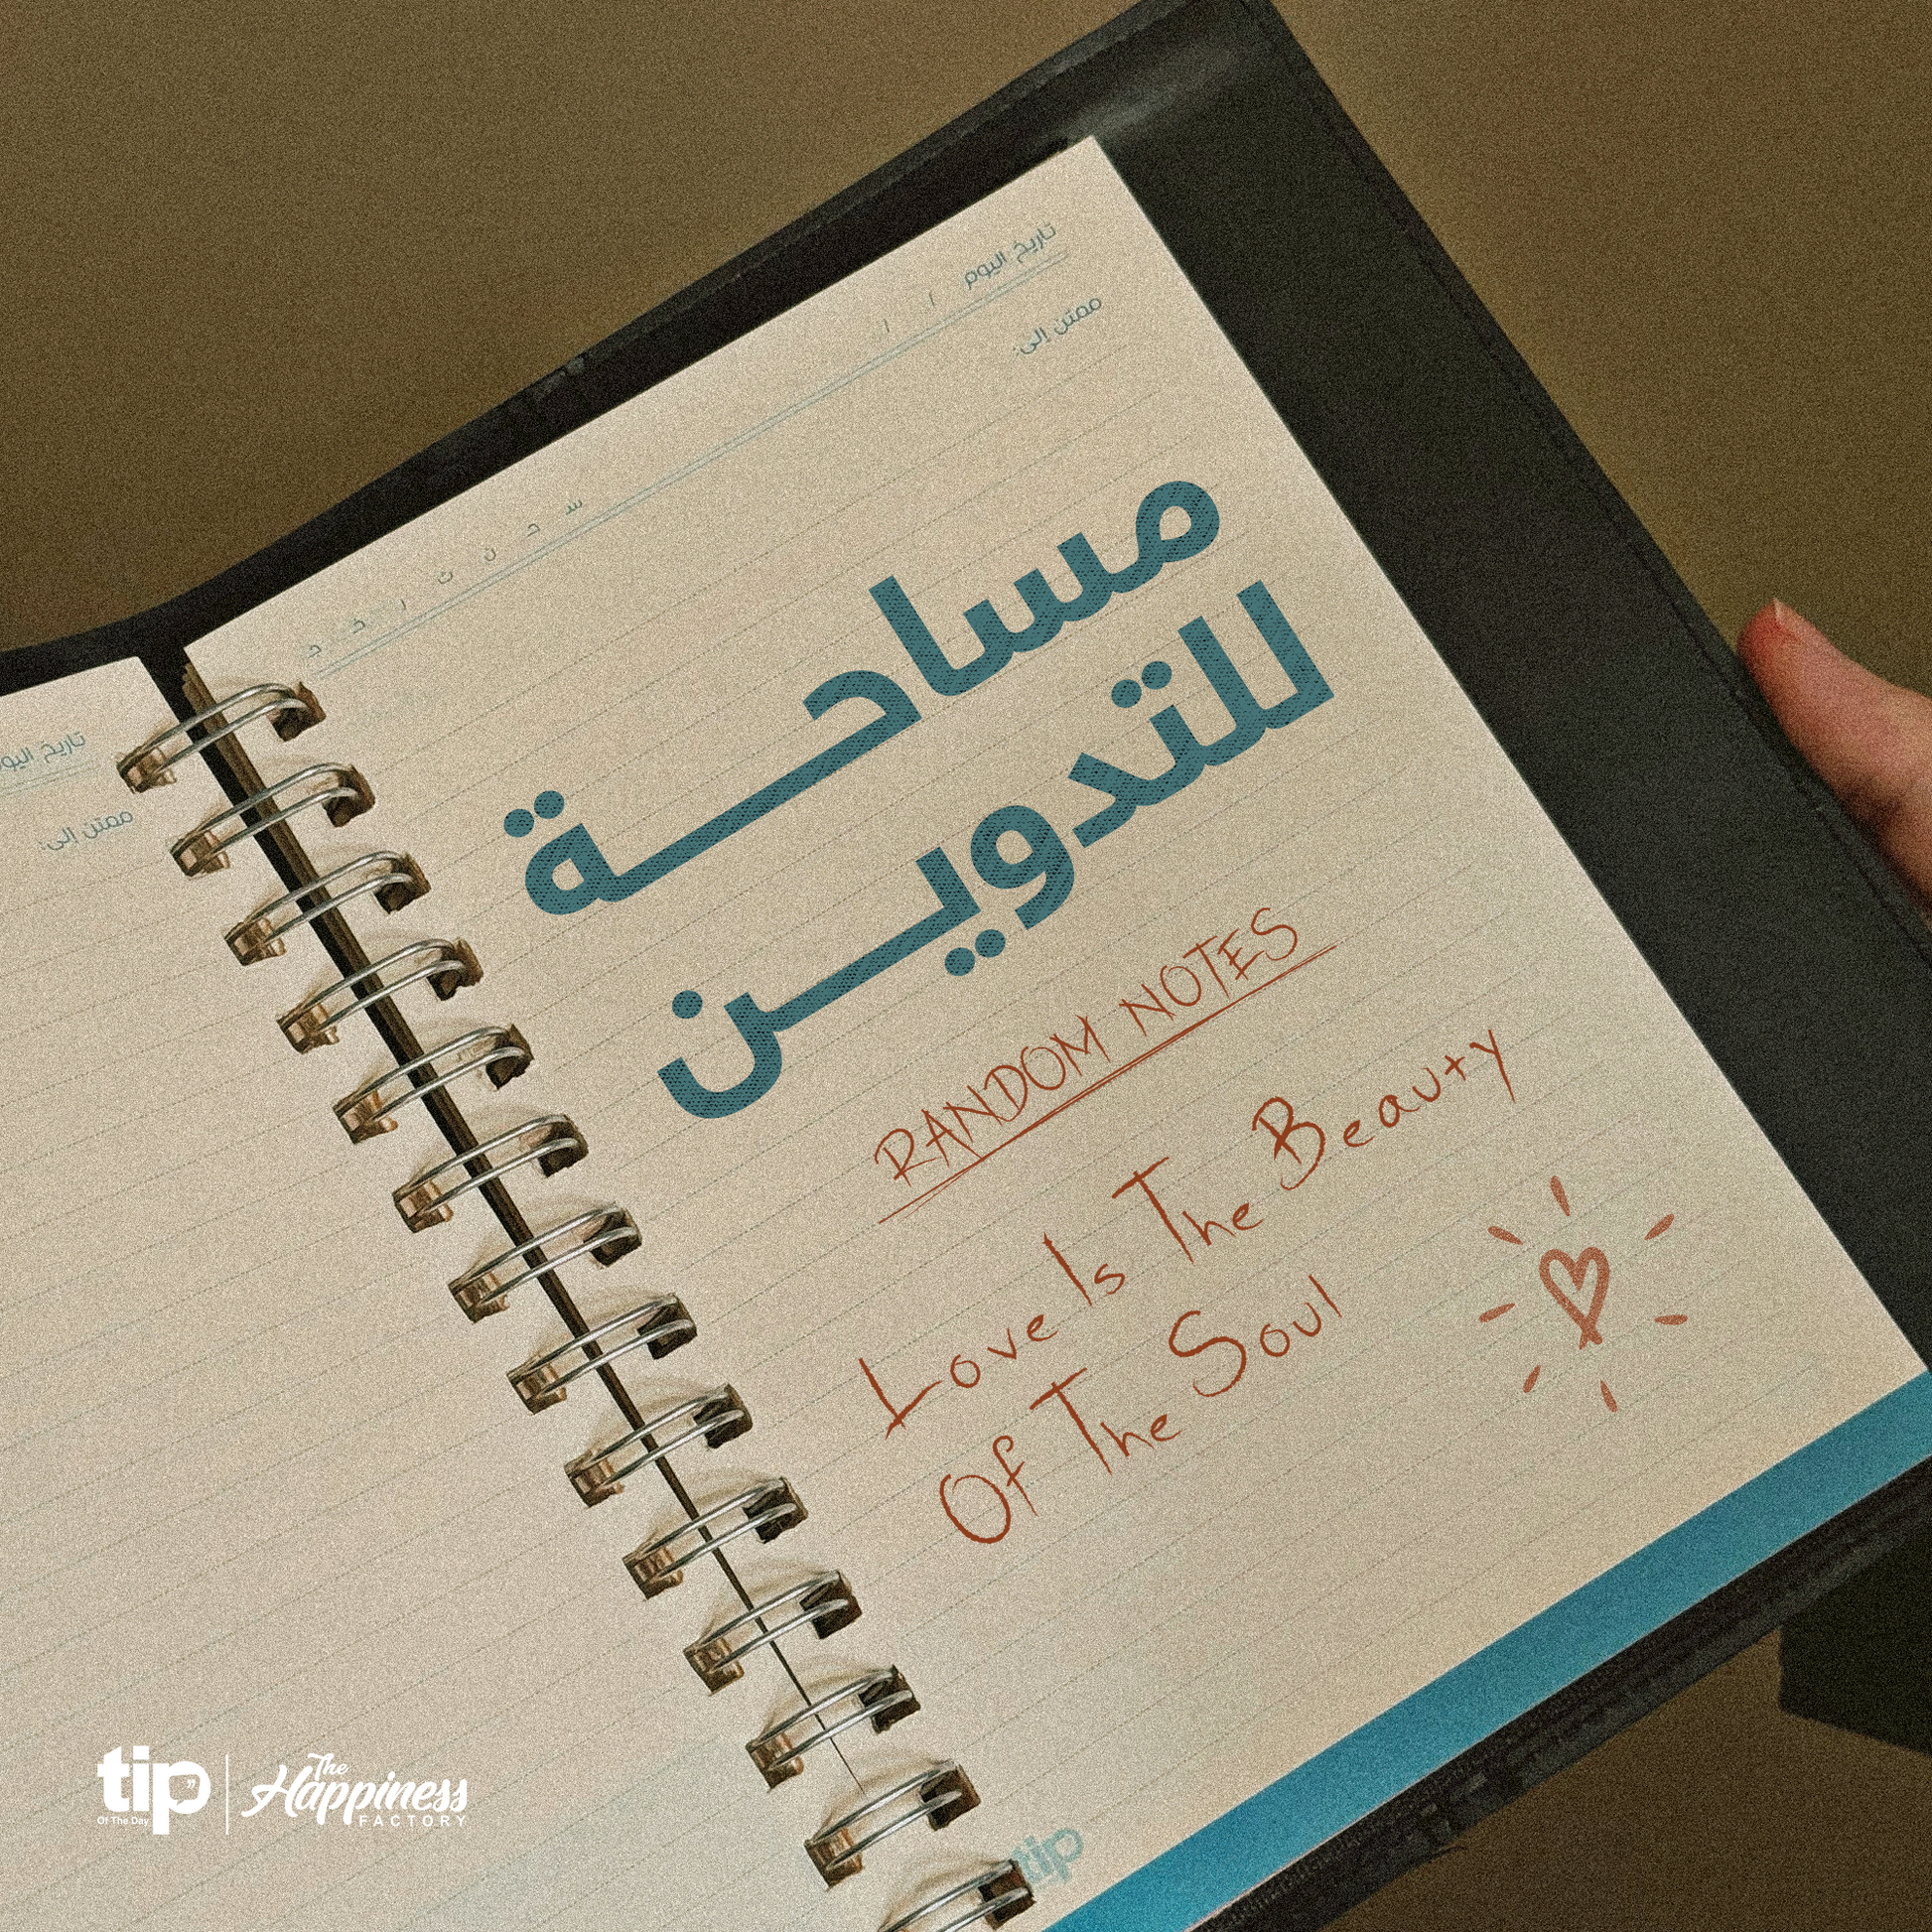 تاريخ اليوم / /
س ح ن ث ر خ ج
ممتن إلى:
مساحة
للتدوين
RANDOM NOTES
Love Is The Beauty
Of The Soul
tip
تاريخ اليوم
ممتن إلى:
tip
Of The Day
The
Happiness
FACTORY